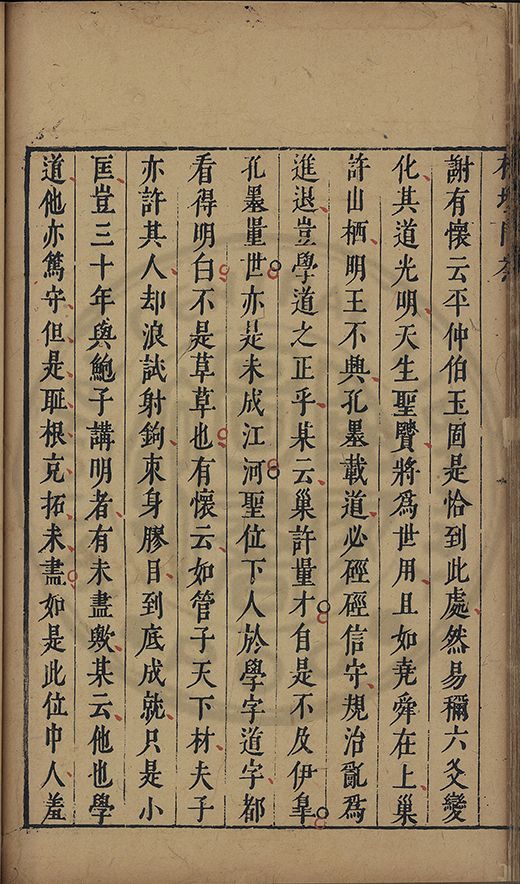 謝有懷云平仲伯玉固是恰到此處然易稱六爻變
化其道光明天生聖賢將為世用且如堯舜在上巢
許山栖明王不興孔墨載道必硜硜信守規治亂為
進退豈學道之正乎某云巢許量才自是不及伊皐
孔墨量世亦是未成江河聖位下人於學字道字都
看得明白不是草草也有懷云如管子天下材夫子
亦許其人却浪試射鉤束身膠目到底成就只是小
匡豈三十年與鮑子講明者有未盡歟某云他也學
道他亦篤守但是耻根克拓未盡如是此位中人羞